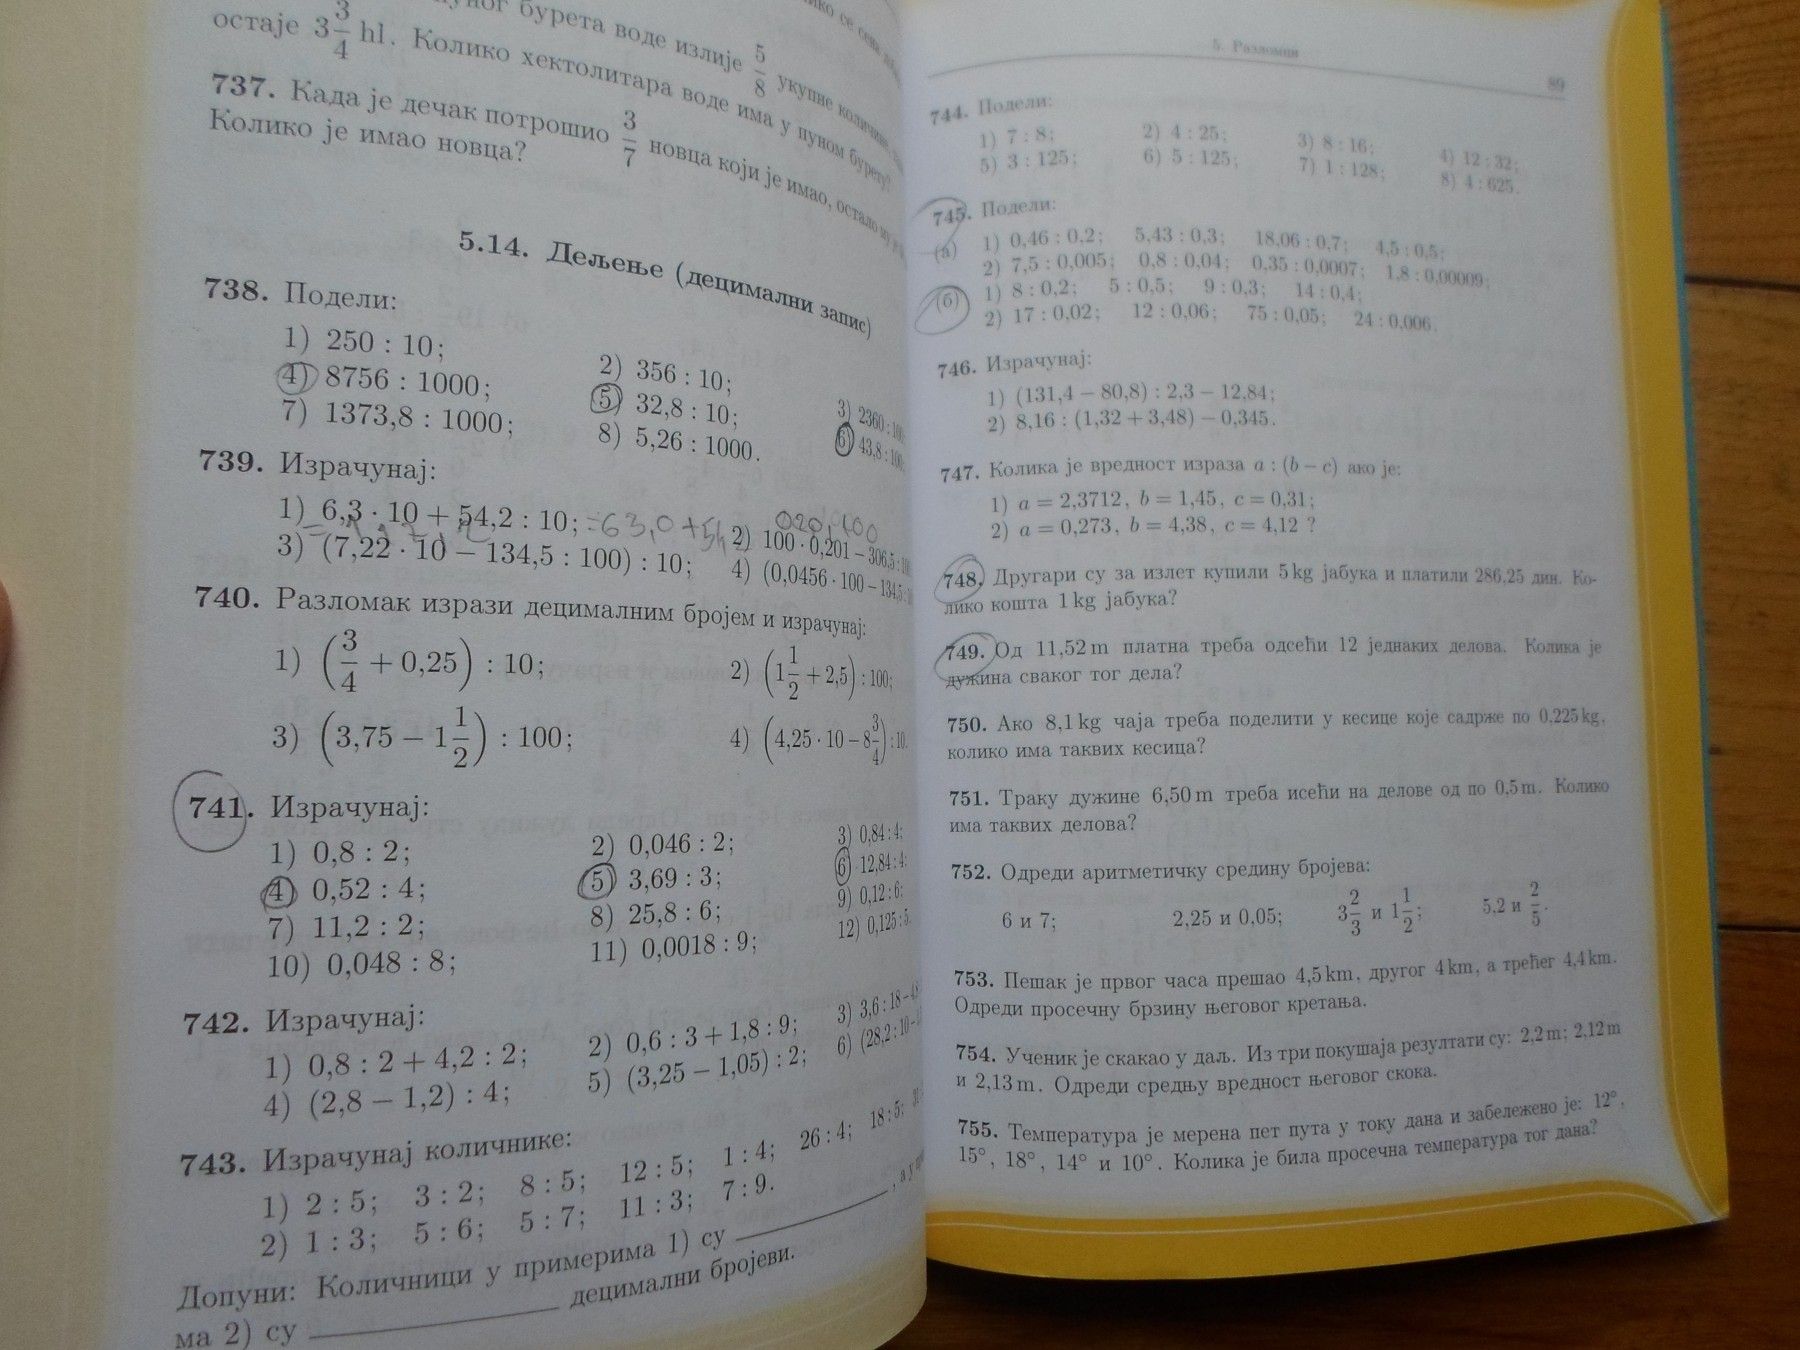 бурета воде излије 5/8 укупне
остаје 3 3/4 hl. Колико хектолитара воде има у пуном бурету?
737. Када је дечак потрошио 3/7 новца који је имао, остало му
Колико је имао новца?
5.14. Дељење (децимални запис)
738. Подели:
1) 250 : 10; 2) 356 : 10; 3) 2360 : 100;
4) 8756 : 1000; 5) 32,8 : 10; 6) 43,8 : 100;
7) 1373,8 : 1000; 8) 5,26 : 1000.
739. Израчунај:
1) 6,3 · 10 + 54,2 : 10; =63,0+54 2) 100 · 0,201 − 306,5 :
3) (7,22 · 10 − 134,5 : 100) : 10; 4) (0,0456 · 100 − 134,5 :
740. Разломак изрази децималним бројем и израчунај:
1) (3/4 + 0,25) : 10; 2) (1 1/2 + 2,5) : 100;
3) (3,75 − 1 1/2) : 100; 4) (4,25 · 10 − 8 3/4) : 10.
741. Израчунај:
1) 0,8 : 2; 2) 0,046 : 2; 3) 0,84 : 4;
4) 0,52 : 4; 5) 3,69 : 3; 6) 12,84 : 4;
7) 11,2 : 2; 8) 25,8 : 6; 9) 0,12 : 6;
10) 0,048 : 8; 11) 0,0018 : 9; 12) 0,125 : 5.
742. Израчунај:
1) 0,8 : 2 + 4,2 : 2; 2) 0,6 : 3 + 1,8 : 9; 3) 3,6 : 18 −
4) (2,8 − 1,2) : 4; 5) (3,25 − 1,05) : 2; 6) (28,2 : 10 −
743. Израчунај количнике:
1) 2 : 5; 3 : 2; 8 : 5; 12 : 5; 1 : 4; 26 : 4; 18 : 5;
2) 1 : 3; 5 : 6; 5 : 7; 11 : 3; 7 : 9.
Допуни: Количници у примерима 1) су , а у
ма 2) су децимални бројеви.
5. Разломци 89
744. Подели:
1) 7 : 8; 2) 4 : 25; 3) 8 : 16; 4) 12 : 32;
5) 3 : 125; 6) 5 : 125; 7) 1 : 128; 8) 4 : 625.
745. Подели:
(а) 1) 0,46 : 0,2; 5,43 : 0,3; 18,06 : 0,7; 4,5 : 0,5;
2) 7,5 : 0,005; 0,8 : 0,04; 0,35 : 0,0007; 1,8 : 0,00009;
(б) 1) 8 : 0,2; 5 : 0,5; 9 : 0,3; 14 : 0,4;
2) 17 : 0,02; 12 : 0,06; 75 : 0,05; 24 : 0,006.
746. Израчунај:
1) (131,4 − 80,8) : 2,3 − 12,84;
2) 8,16 : (1,32 + 3,48) − 0,345.
747. Колика је вредност израза a : (b − c) ако је:
1) a = 2,3712, b = 1,45, c = 0,31;
2) a = 0,273, b = 4,38, c = 4,12 ?
748. Другари су за излет купили 5 kg јабука и платили 286,25 дин. Ко-
лико кошта 1 kg јабука?
749. Од 11,52 m платна треба одсећи 12 једнаких делова. Колика је
дужина сваког тог дела?
750. Ако 8,1 kg чаја треба поделити у кесице које садрже по 0,225 kg,
колико има таквих кесица?
751. Траку дужине 6,50 m треба исећи на делове од по 0,5 m. Колико
има таквих делова?
752. Одреди аритметичку средину бројева:
6 и 7; 2,25 и 0,05; 3 2/3 и 1 1/2; 5,2 и 2/5.
753. Пешак је првог часа прешао 4,5 km, другог 4 km, а трећег 4,4 km.
Одреди просечну брзину његовог кретања.
754. Ученик је скакао у даљ. Из три покушаја резултати су: 2,2 m; 2,12 m
и 2,13 m. Одреди средњу вредност његовог скока.
755. Температура је мерена пет пута у току дана и забележено је: 12°,
15°, 18°, 14° и 10°. Колика је била просечна температура тог дана?